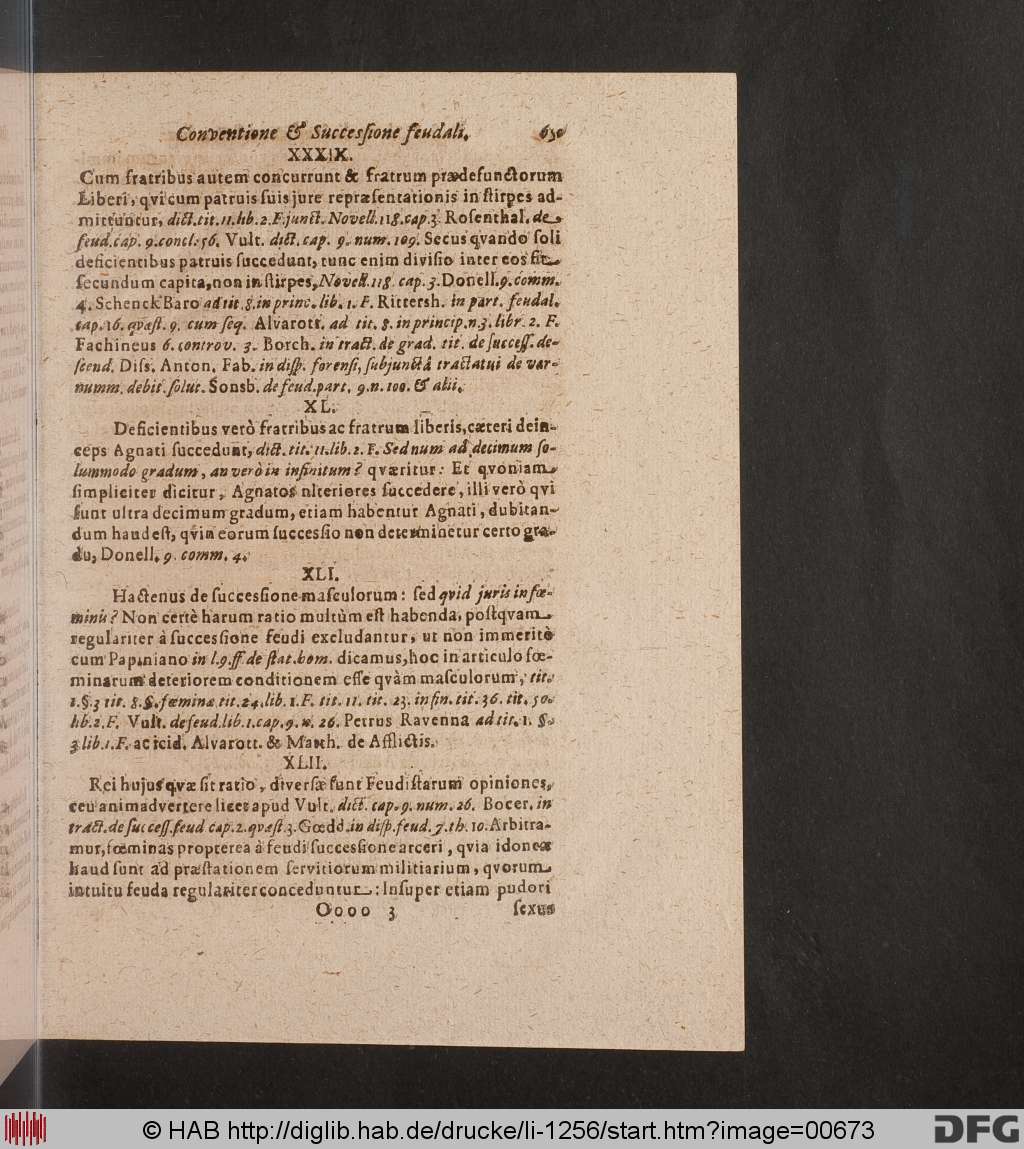 Conventione & Successione feudali. 650
XXXIX.
Cum fratribus autem concurrunt & fratrum prædefunctorum
Liberi, qvi cum patruis suis jure repræsentationis in stirpes ad-
mittuntur, dict. tit. 11. lib. 2. F. junct. Novell. 118. cap. 3. Rosenthal. de
feud. cap. 9. concl. 56. Vult. dict. cap. 9. num. 109. Secus qvando soli
deficientibus patruis succedunt, tunc enim divisio inter eos fit
secundum capita, non in stirpes, Novell. 118. cap. 3. Donell. 9. comm.
4. Schenck Baro ad tit. 8. in princ. lib. 1. F. Rittersh. in part. feudal.
cap. 16. qvæst. 9. cum seq. Alvarott. ad tit. 8. in princip. n. 3. libr. 2. F.
Fachineus 6. controv. 3. Borch. in tract. de grad. tit. de success. de-
scend. Diss. Anton. Fab. in disp. forensi, subjunctâ tractatui de var.
numm. debit. solut. Sonsb. de feud. part. 9. n. 100. & alii.
XL.
Deficientibus verò fratribus ac fratrum liberis, cæteri dein-
ceps Agnati succedunt, dict. tit. 11. lib. 2. F. Sed num ad decimum so-
lummodo gradum, an verò in infinitum? qværitur: Et qvoniam
simpliciter dicitur, Agnatos ulteriores succedere, illi verò qvi
sunt ultra decimum gradum, etiam habentur Agnati, dubitan-
dum haud est, qvin eorum successio non determinetur certo gra-
du, Donell. 9. comm. 4.
XLI.
Hactenus de successione masculorum: sed qvid juris in fœ-
minis? Non certè harum ratio multùm est habenda, postqvam
regulariter à successione feudi excludantur, ut non immeritò
cum Papiniano in l. 9. ff. de stat. hom. dicamus, hoc in articulo fœ-
minarum deteriorem conditionem esse qvàm masculorum, tit.
1. §. 3 tit. 8. §. fœmina tit. 24. lib. 1. F. tit. 11. tit. 23. in fin. tit. 36. tit. 50.
lib. 2. F. Vult. de feud. lib. 1. cap. 9. n. 26. Petrus Ravenna ad tit. 1. §.
3 lib. 1. F. ac icid. Alvarott. & Matth. de Afflictis.
XLII.
Rei hujus qvæ sit ratio, diversæ sunt Feudistarum opiniones,
ceu animadvertere licet apud Vult. dict. cap. 9. num. 26. Bocer. in
tract. de success. feud cap. 2. qvæst. 3. Gœdd. in disp. feud. 7. th. 10. Arbitra-
mur, fœminas propterea à feudi successione arceri, qvia idoneæ
haud sunt ad præstationem servitiorum militiarium, qvorum
intuitu feuda regulariter conceduntur: Insuper etiam pudori
Oooo 3 sexus
© HAB http://diglib.hab.de/drucke/li-1256/start.htm?image=00673
DFG